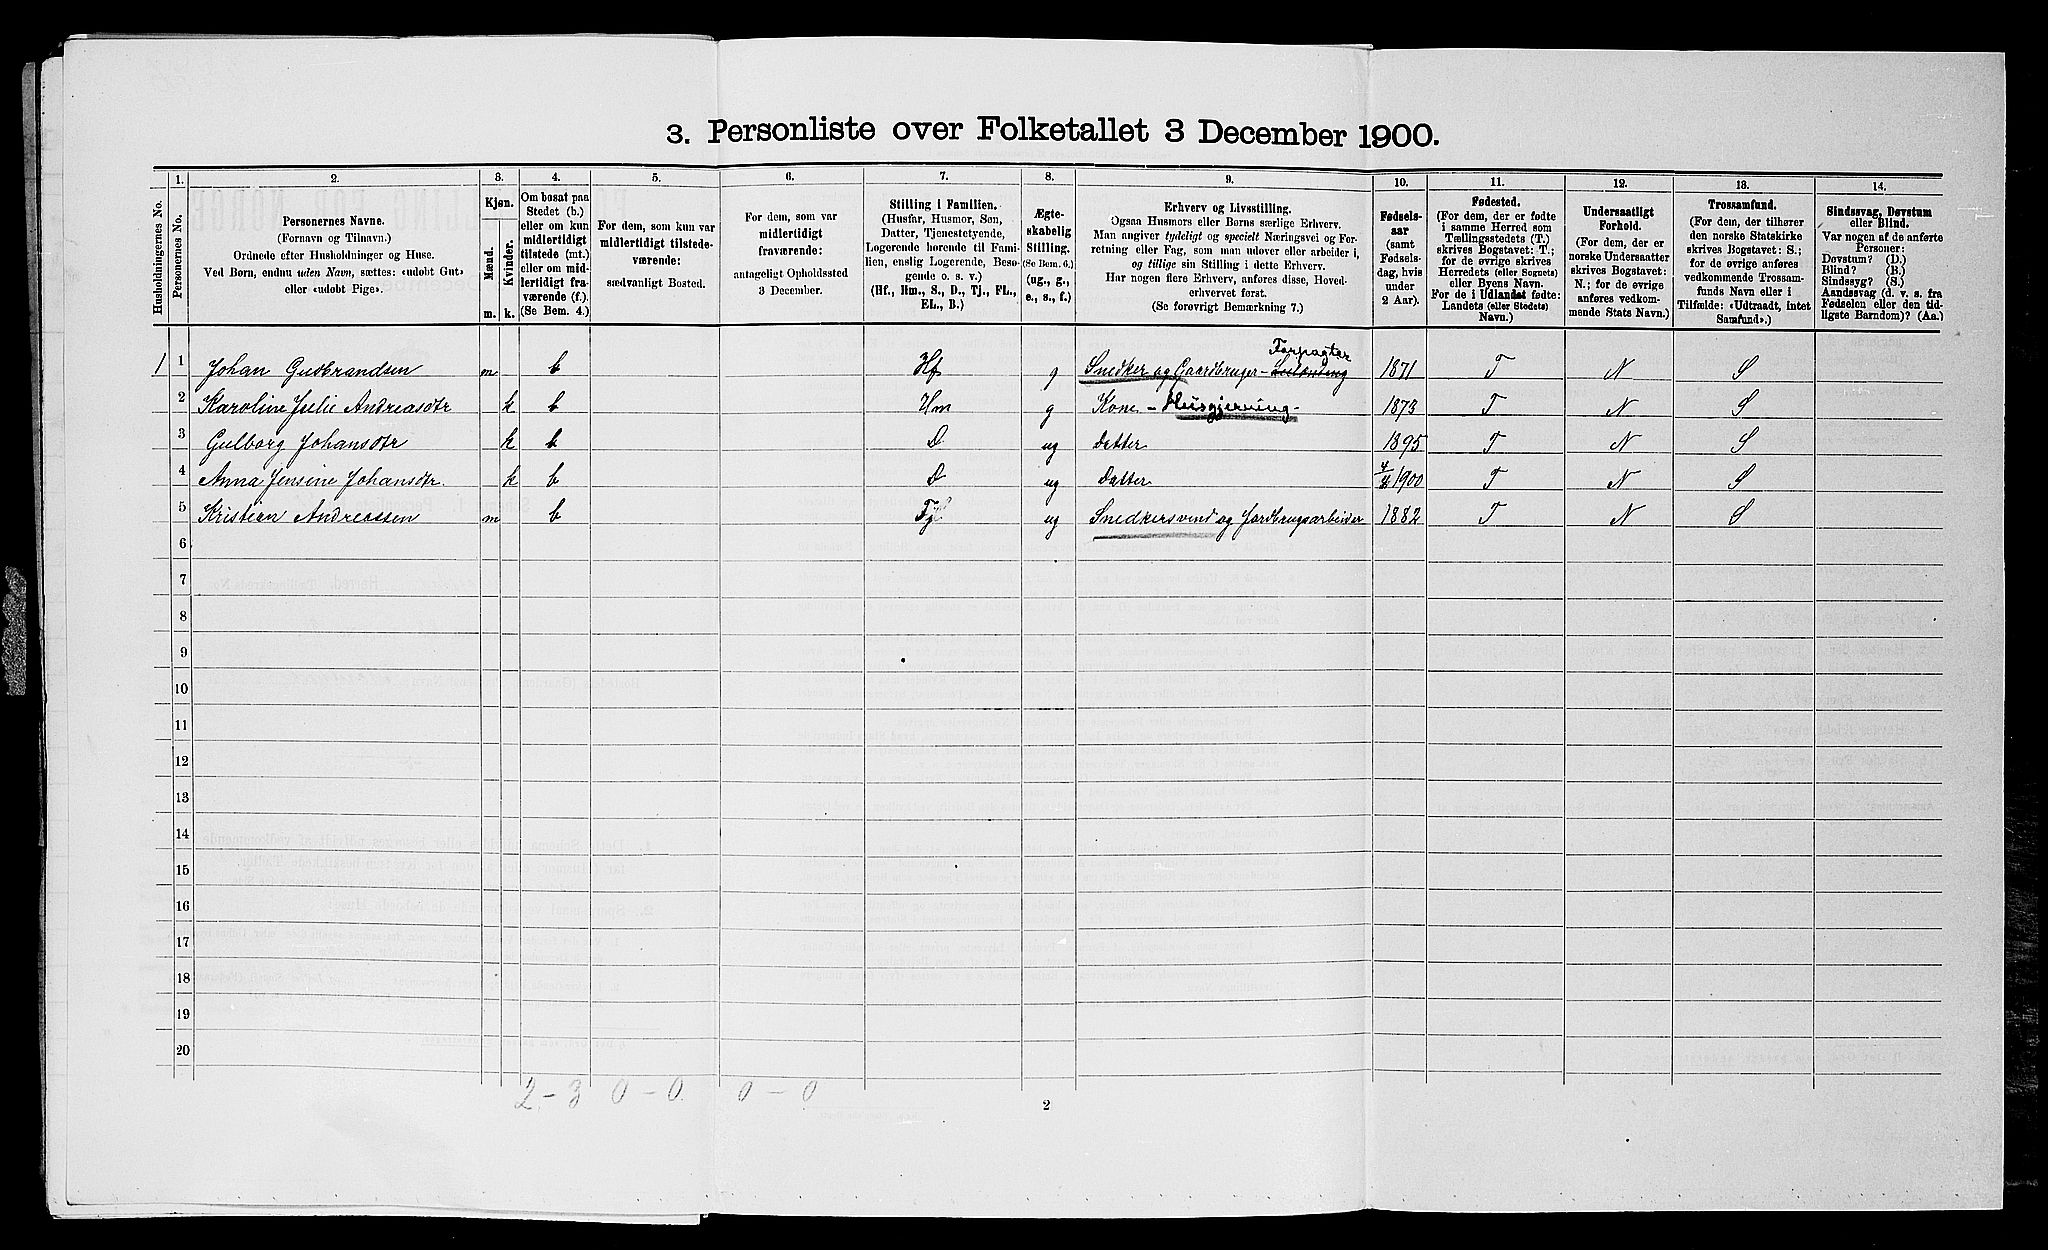 3. Personliste over Folketallet 3 December 1900.
Husholdningernes No.
1.
Personernes No.
2.
Personernes Navne.
(Fornavn og Tilnavn.)
Ordnede efter Husholdninger og Huse.
Ved Børn, endnu uden Navn, sættes: «udøbt Gut»
eller «udøbt Pige».
3.
Kjøn.
Mænd.
m.
Kvinder.
k.
4.
Om bosat paa
Stedet (b.)
eller om kun
midlertidigt
tilstede (mt.)
eller om mid-
lertidigt fra-
værende (f.)
(Se Bem. 4.)
5.
For dem, som kun var
midlertidigt tilstede-
værende:
sædvanligt Bosted.
6.
For dem, som var
midlertidigt
fraværende:
antageligt Opholdssted
3 December.
7.
Stilling i Familien.
(Husfar, Husmor, Søn,
Datter, Tjenestetyende,
Logerende hørende til Fami-
lien, enslig Logerende, Besø-
gende o. s. v.)
(Hf., Hm., S., D., Tj., FL.,
EL., B.)
8.
Ægte-
skabelig
Stilling.
(Se Bem. 6.)
(ug., g.,
e., s., f.)
9.
Erhverv og Livsstilling.
Ogsaa Husmors eller Børns særlige Erhverv.
Man angiver tydeligt og specielt Næringsvei og For-
retning eller Fag, som man udøver eller arbeider i,
og tillige sin Stilling i dette Erhverv.
Har nogen flere Erhverv, anføres disse, Hoved-
erhvervet først.
(Se forøvrigt Bemærkning 7.)
10.
Fødsels-
aar
(samt
Fødsels-
dag, hvis
under
2 Aar).
11.
Fødested.
(For dem, der er fødte
i samme Herred som
Tællingsstedets (T.)
skrives Bogstavet: T.;
for de øvrige skrives
Herredets (eller Sognets)
eller Byens Navn.
For de i Udlandet fødte:
Landets (eller Stedets)
Navn.)
12.
Undersaatligt
Forhold.
(For dem, der er
norske Undersaatter
skrives Bogstavet:
N.; for de øvrige
anføres vedkom-
mende Stats Navn.)
13.
Trossamfund.
(For dem, der tilhører
den norske Statskirke
skrives Bogstavet: S.;
for de øvrige anføres
vedkommende Trossam-
funds Navn eller i
Tilfælde: «Udtraadt, intet
Samfund».)
14.
Sindssvag, Døvstum
eller Blind.
Var nogen af de anførte
Personer:
Døvstum? (D.)
Blind? (B.)
Sindssyg? (S.)
Aandssvag (d. v. s. fra
Fødselen eller den tid-
ligste Barndom)? (Aa.)
Forpagter
1 1 Johan Gudbrandsen m b Hf g Snedker og Gaardbruger - 1871 T N S
2 Karoline Julie Andreasdtr k b Hm g Kone - Husgjerning - 1873 T N S
3 Gulborg Johansdtr k b D ug Datter 1895 T N S
4 Anna Jensine Johansdtr. k b D ug Datter 1900 T N S
5 Kristian Andreassen m b Tj ug Snedkersvend og Jordbrugsarbeider 1882 T N S
6
7
8
9
10
11
12
13
14
15
16
17
18
19
20
2 - 3 0 - 0 0 - 0
2